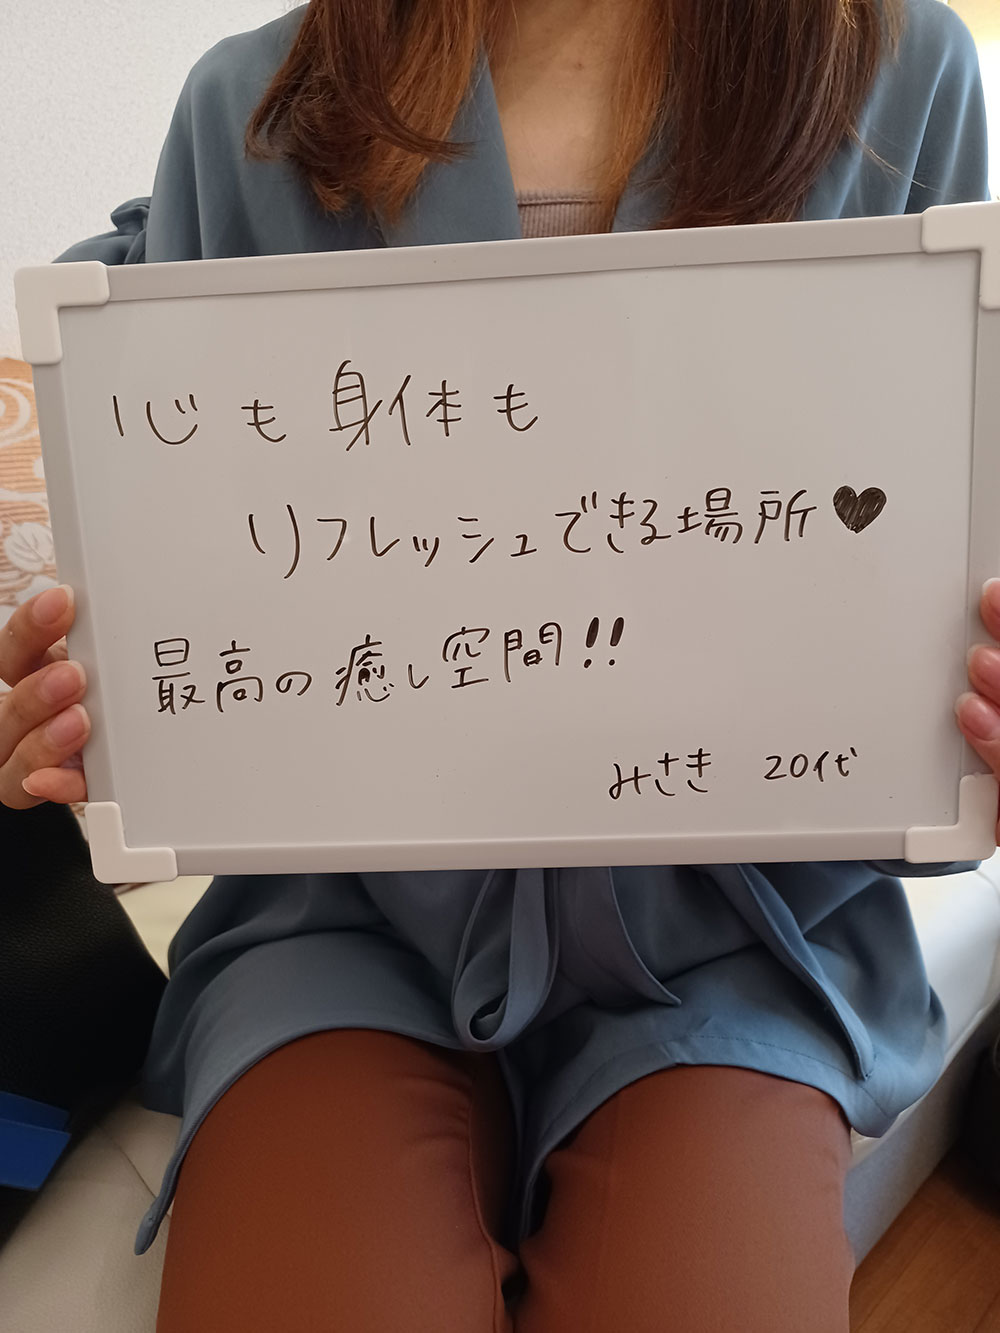 心も身体も
リフレッシュできる場所♥
最高の癒し空間!!
みさき 20代